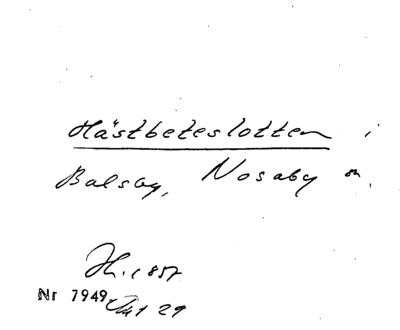 Hästbeteslotten i
Balsby, Nosaby sn.
1857
Nr 7949
29